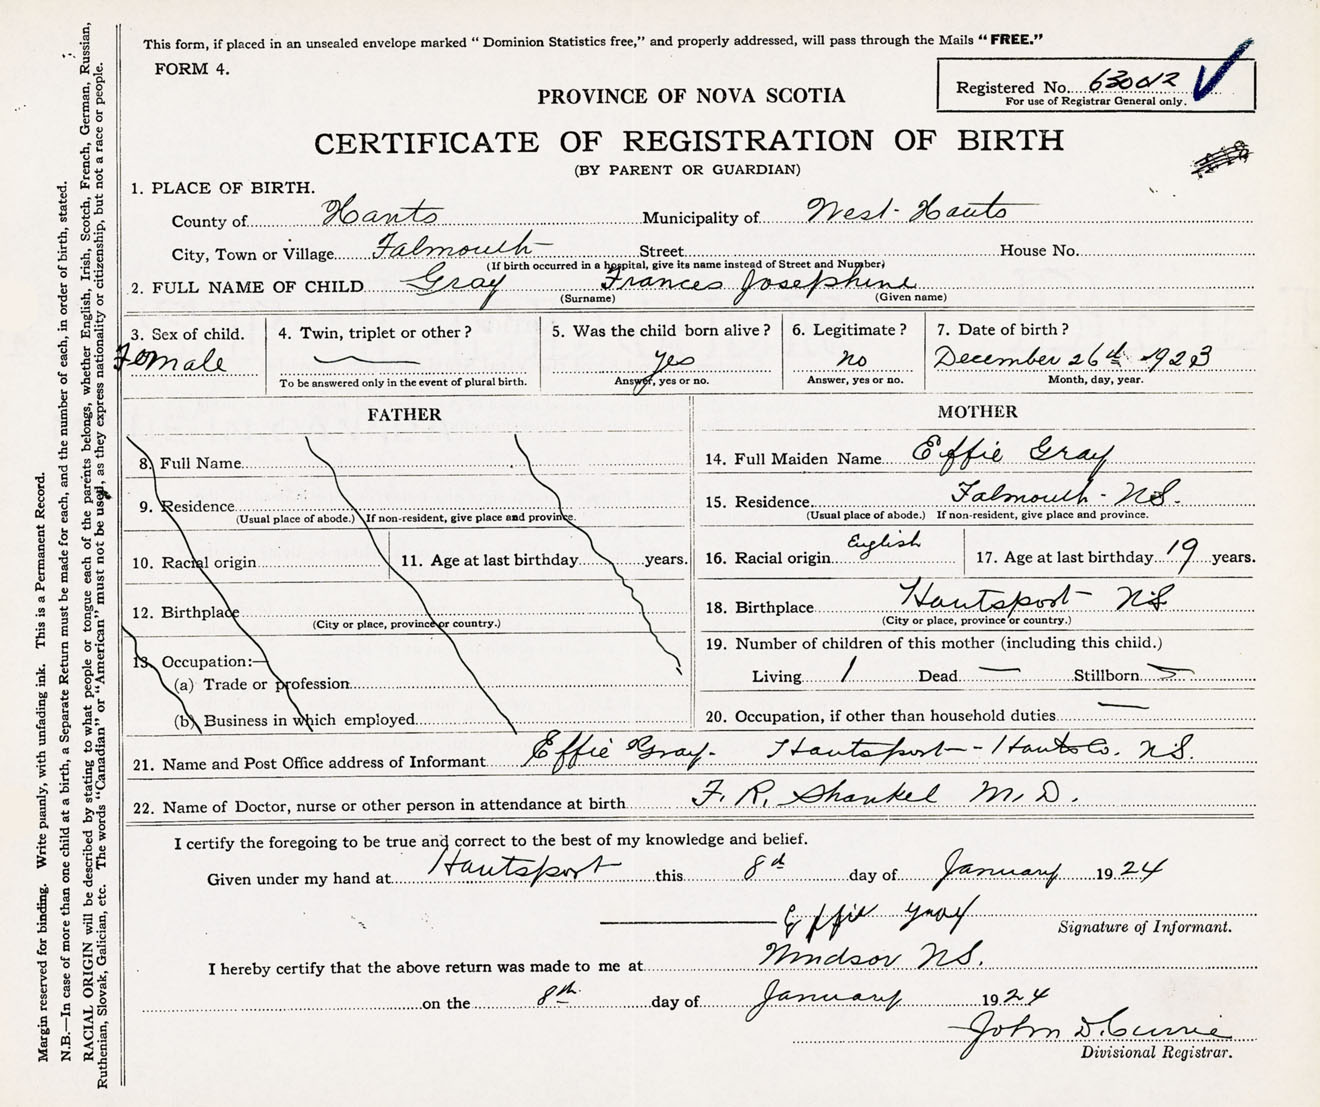 This form, if placed in an unsealed envelope marked “ Dominion Statistics free,” and properly addressed, will pass through the Mails “ FREE.”
FORM 4.
Registered No.
For use of Registrar General only.
PROVINCE OF NOVA SCOTIA
CERTIFICATE OF REGISTRATION OF BIRTH
(BY PARENT OR GUARDIAN)
1. PLACE OF BIRTH.
County of Hants Municipality of West Hants
City, Town or Village Falmouth Street House No.
(If birth occurred in a hospital, give its name instead of Street and Number)
2. FULL NAME OF CHILD Gray Frances Josephine
(Surname) (Given name)
3. Sex of child. 4. Twin, triplet or other ? 5. Was the child born alive ? 6. Legitimate ? 7. Date of birth ?
Female yes no December 26th 1923
To be answered only in the event of plural birth. Answer, yes or no. Answer, yes or no. Month, day, year.
FATHER MOTHER
8. Full Name 14. Full Maiden Name Effie Gray
9. Residence 15. Residence Falmouth - N.S.
(Usual place of abode.) If non-resident, give place and province. (Usual place of abode.) If non-resident, give place and province.
10. Racial origin 11. Age at last birthday years. 16. Racial origin English 17. Age at last birthday 19 years.
12. Birthplace 18. Birthplace Hantsport N.S.
(City or place, province or country.) (City or place, province or country.)
13. Occupation:— 19. Number of children of this mother (including this child.)
(a) Trade or profession Living 1 Dead — Stillborn —
(b) Business in which employed 20. Occupation, if other than household duties —
21. Name and Post Office address of Informant Effie Gray - Hantsport - Hants Co. N.S.
22. Name of Doctor, nurse or other person in attendance at birth F. R. Shankel M. D.
I certify the foregoing to be true and correct to the best of my knowledge and belief.
Given under my hand at Hantsport this 8th day of January 1924
Effie Gray
Signature of Informant.
I hereby certify that the above return was made to me at Windsor N.S.
on the 8th day of January 1924
John D. Currie
Divisional Registrar.
Margin reserved for binding. Write plainly, with unfading ink. This is a Permanent Record.
N.B.—In case of more than one child at a birth, a Separate Return must be made for each, and the number of each, in order of birth, stated.
RACIAL ORIGIN will be described by stating to what people or tongue each of the parents belongs, whether English, Irish, Scotch, French, German, Russian,
Ruthenian, Slovak, Galician, etc. The words “Canadian” or “American” must not be used, as they express nationality or citizenship, but not a race or people.